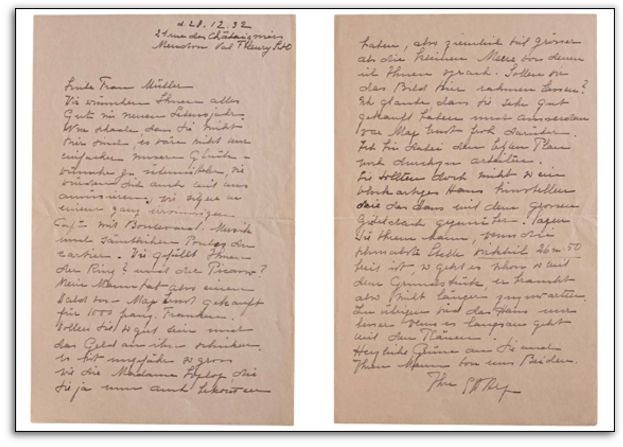 d. 28.12.32
21 rue des Châtaigniers
Meudon Val Fleury S&O
Liebe Frau Müller
Wir wünschen Ihnen alles
Gute im neuen Lebensjahr.
Wie schade dass Sie nicht
hier sind, es wäre nicht nur
einfacher unsere Glück-
wünsche zu übermitteln, Sie
würden sich auch mit uns
amüsieren, wir sitzen in
einem ganz
Café mit Boulevard. Musik
und sämtlichen
. Wie gefällt Ihnen
der Ring? und der Picasso?
Meine Mann hat also einen
Wald von Max Ernst gekauft
für 1000 franz. Franken.
Wollen Sie so gut sein und
das Geld an ihn schicken,
es ist ungefähr so gross
wie die Madame die
Sie ja nun auch
haben, also ziemlich viel grösser
als die kleinen Meere von denen
ich Ihnen sprach. Sollen wir
das Bild hier rahmen lassen?
Ich glaube dass Sie sehr gut
gekauft haben und ausserdem
war Max Ernst froh darüber.
Ich bin dabei den Plan
noch durchzu arbeiten.
Sie sollten doch nicht so ein
Haus hinstellen
das dann mit dem grossen
gegenüber. Sagen
Sie Ihrem Mann, wenn die
schmalste Stelle wirklich 26 m. 50
breit ist, so geht es schon so mit
dem Grundstück, er braucht
also nicht länger zuzuwarten.
Im übrigen wird das Haus nur
besser wenn es langsam geht
mit den Plänen.
Herzliche Grüsse an Sie und
Ihren Mann von uns Beiden.
Ihre